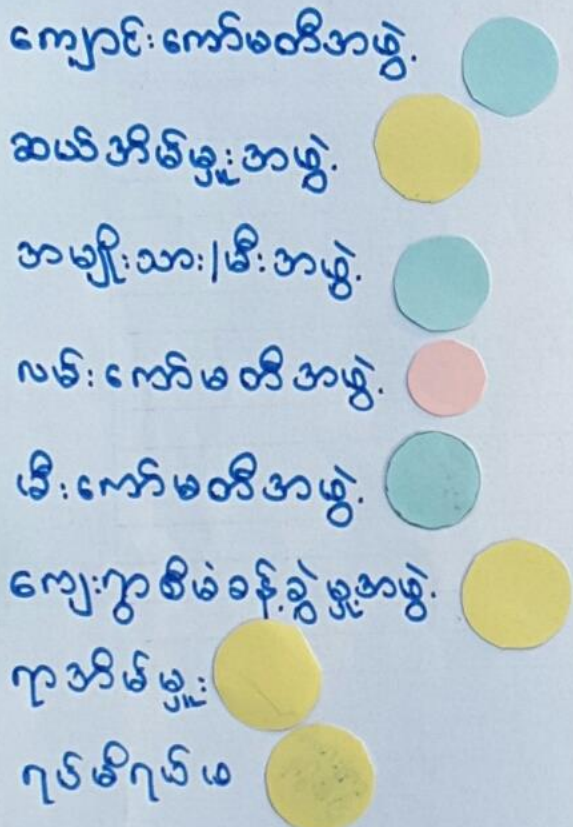 ကျောင်းကော်မတီအဖွဲ့
ဆယ်အိမ်မှူးအဖွဲ့
အမျိုးသား/မီးအဖွဲ့
လမ်းကော်မတီအဖွဲ့
မီးကော်မတီအဖွဲ့
ကျေးရွာစီမံခန့်ခွဲမှုအဖွဲ့
ရာအိမ်မှူး
ရပ်မိရပ်ဖ